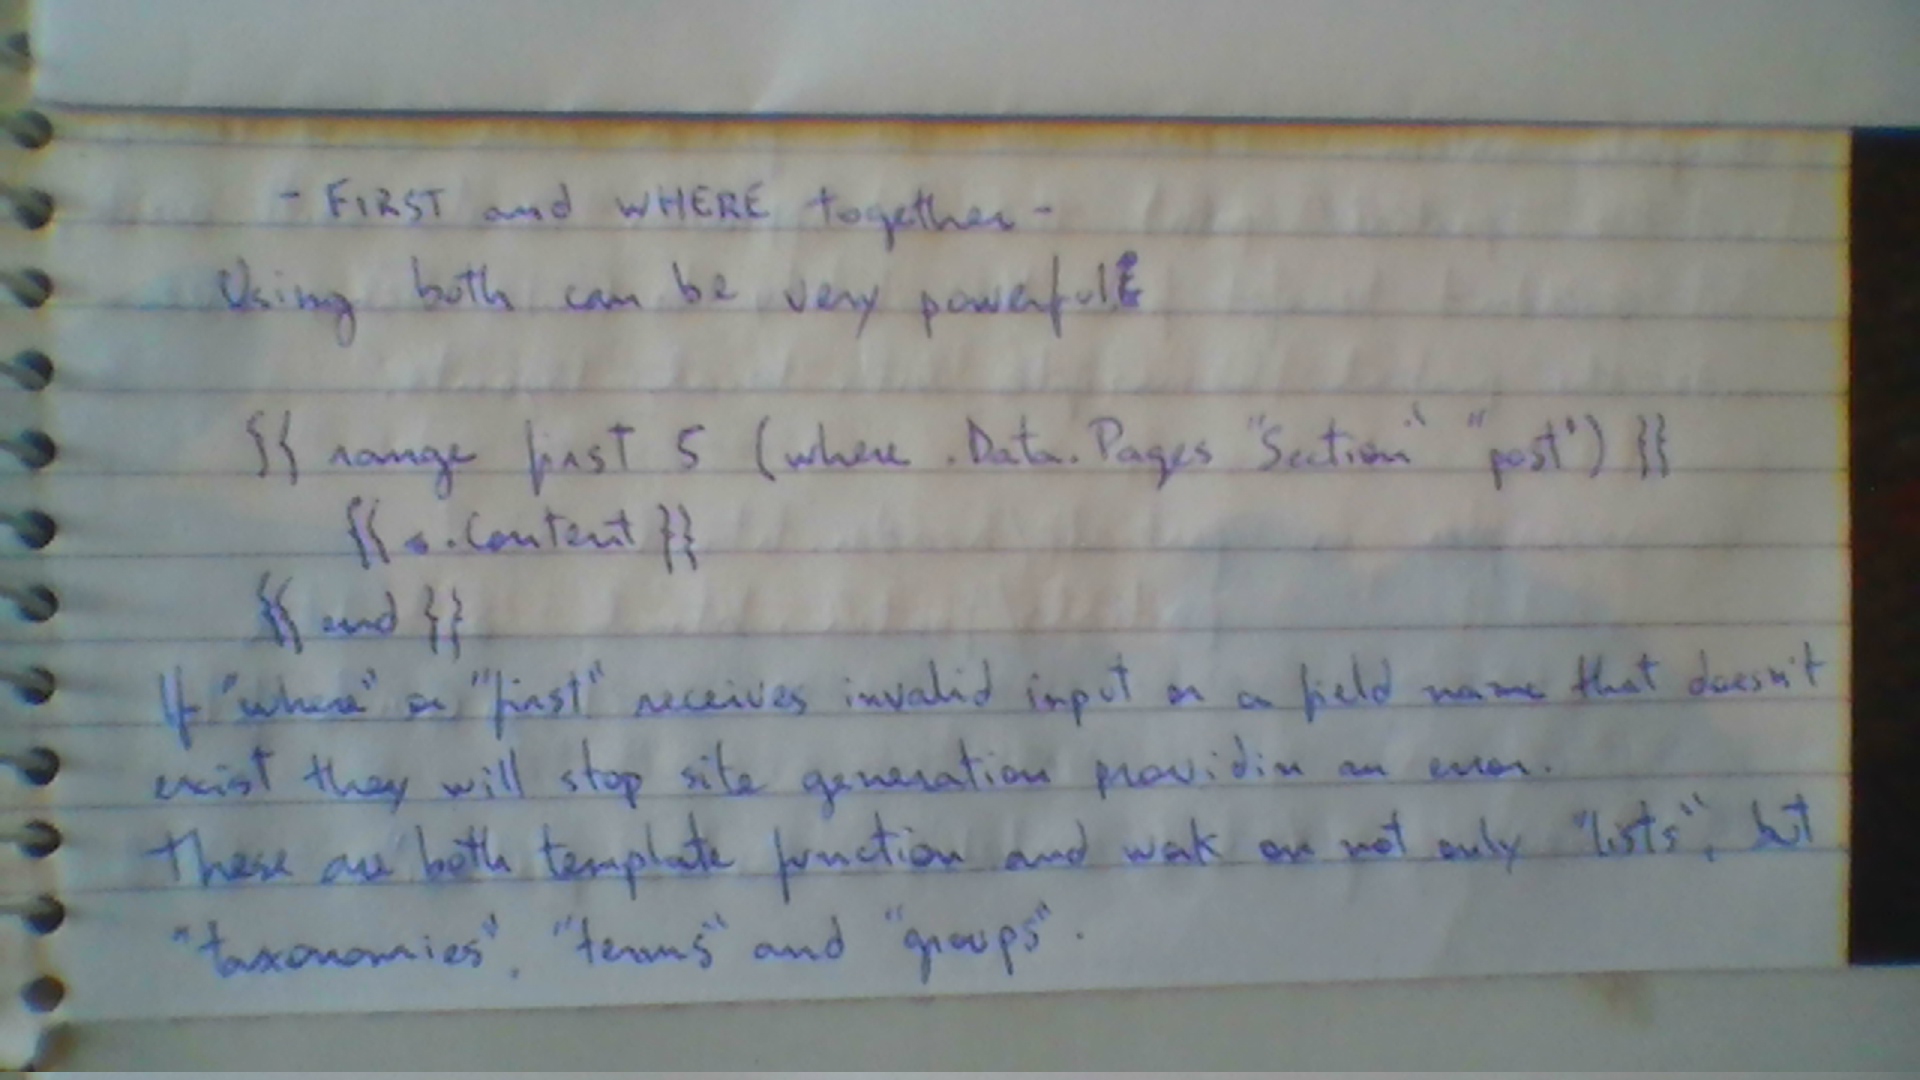 - FIRST and WHERE together -
Using both can be very powerful
{{ range first 5 (where .Data.Pages "Section" "post") }}
{{ .Content }}
{{ end }}
If "where" or "first" receives invalid input or a field name that doesn't
exist they will stop site generation providin an error.
These are both template function and work on not only "lists", but
"taxonomies", "terms" and "groups".